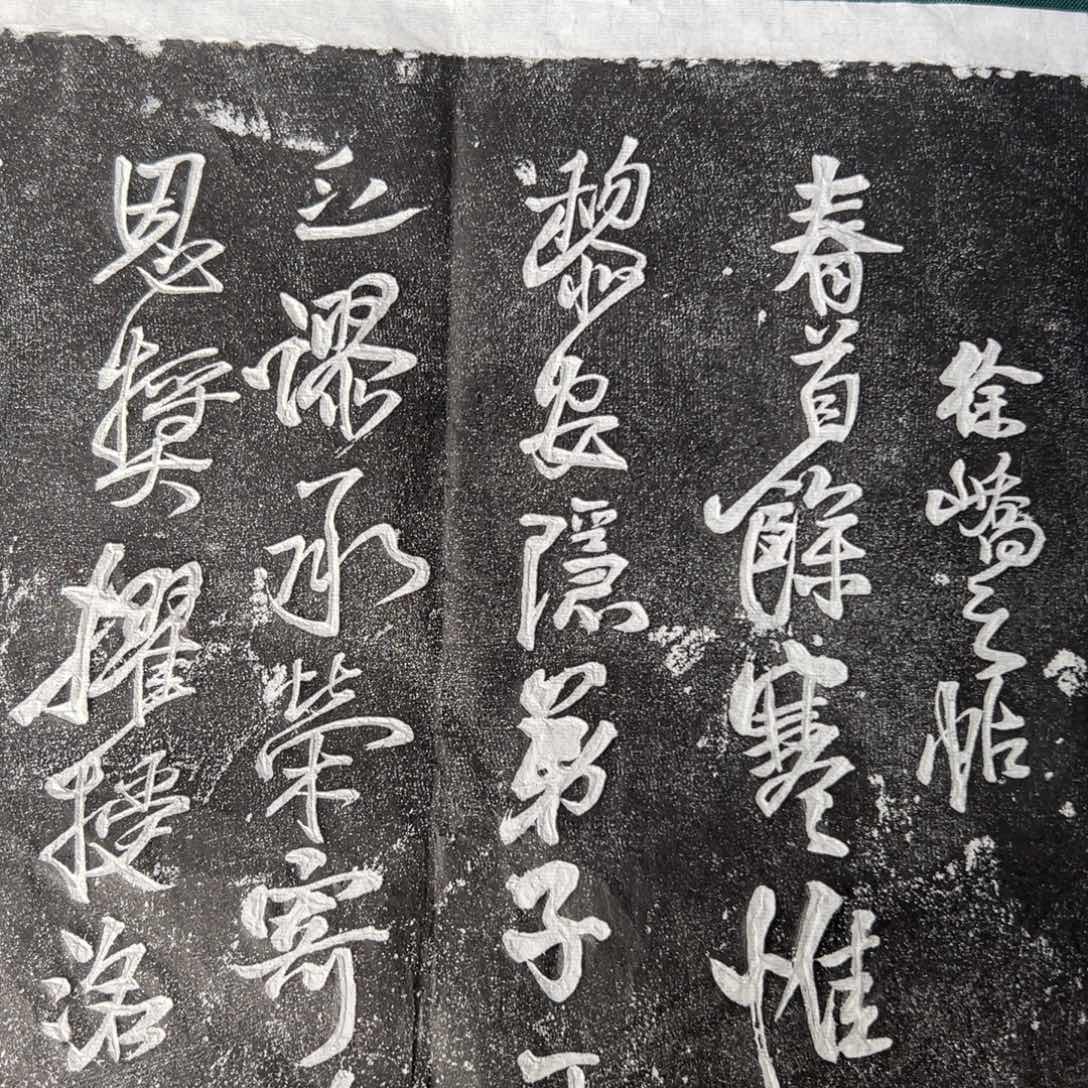 徐嶠之帖
春首餘寒惟
黎安隱弟子
乏謬承榮寄
恩獎擢授洛